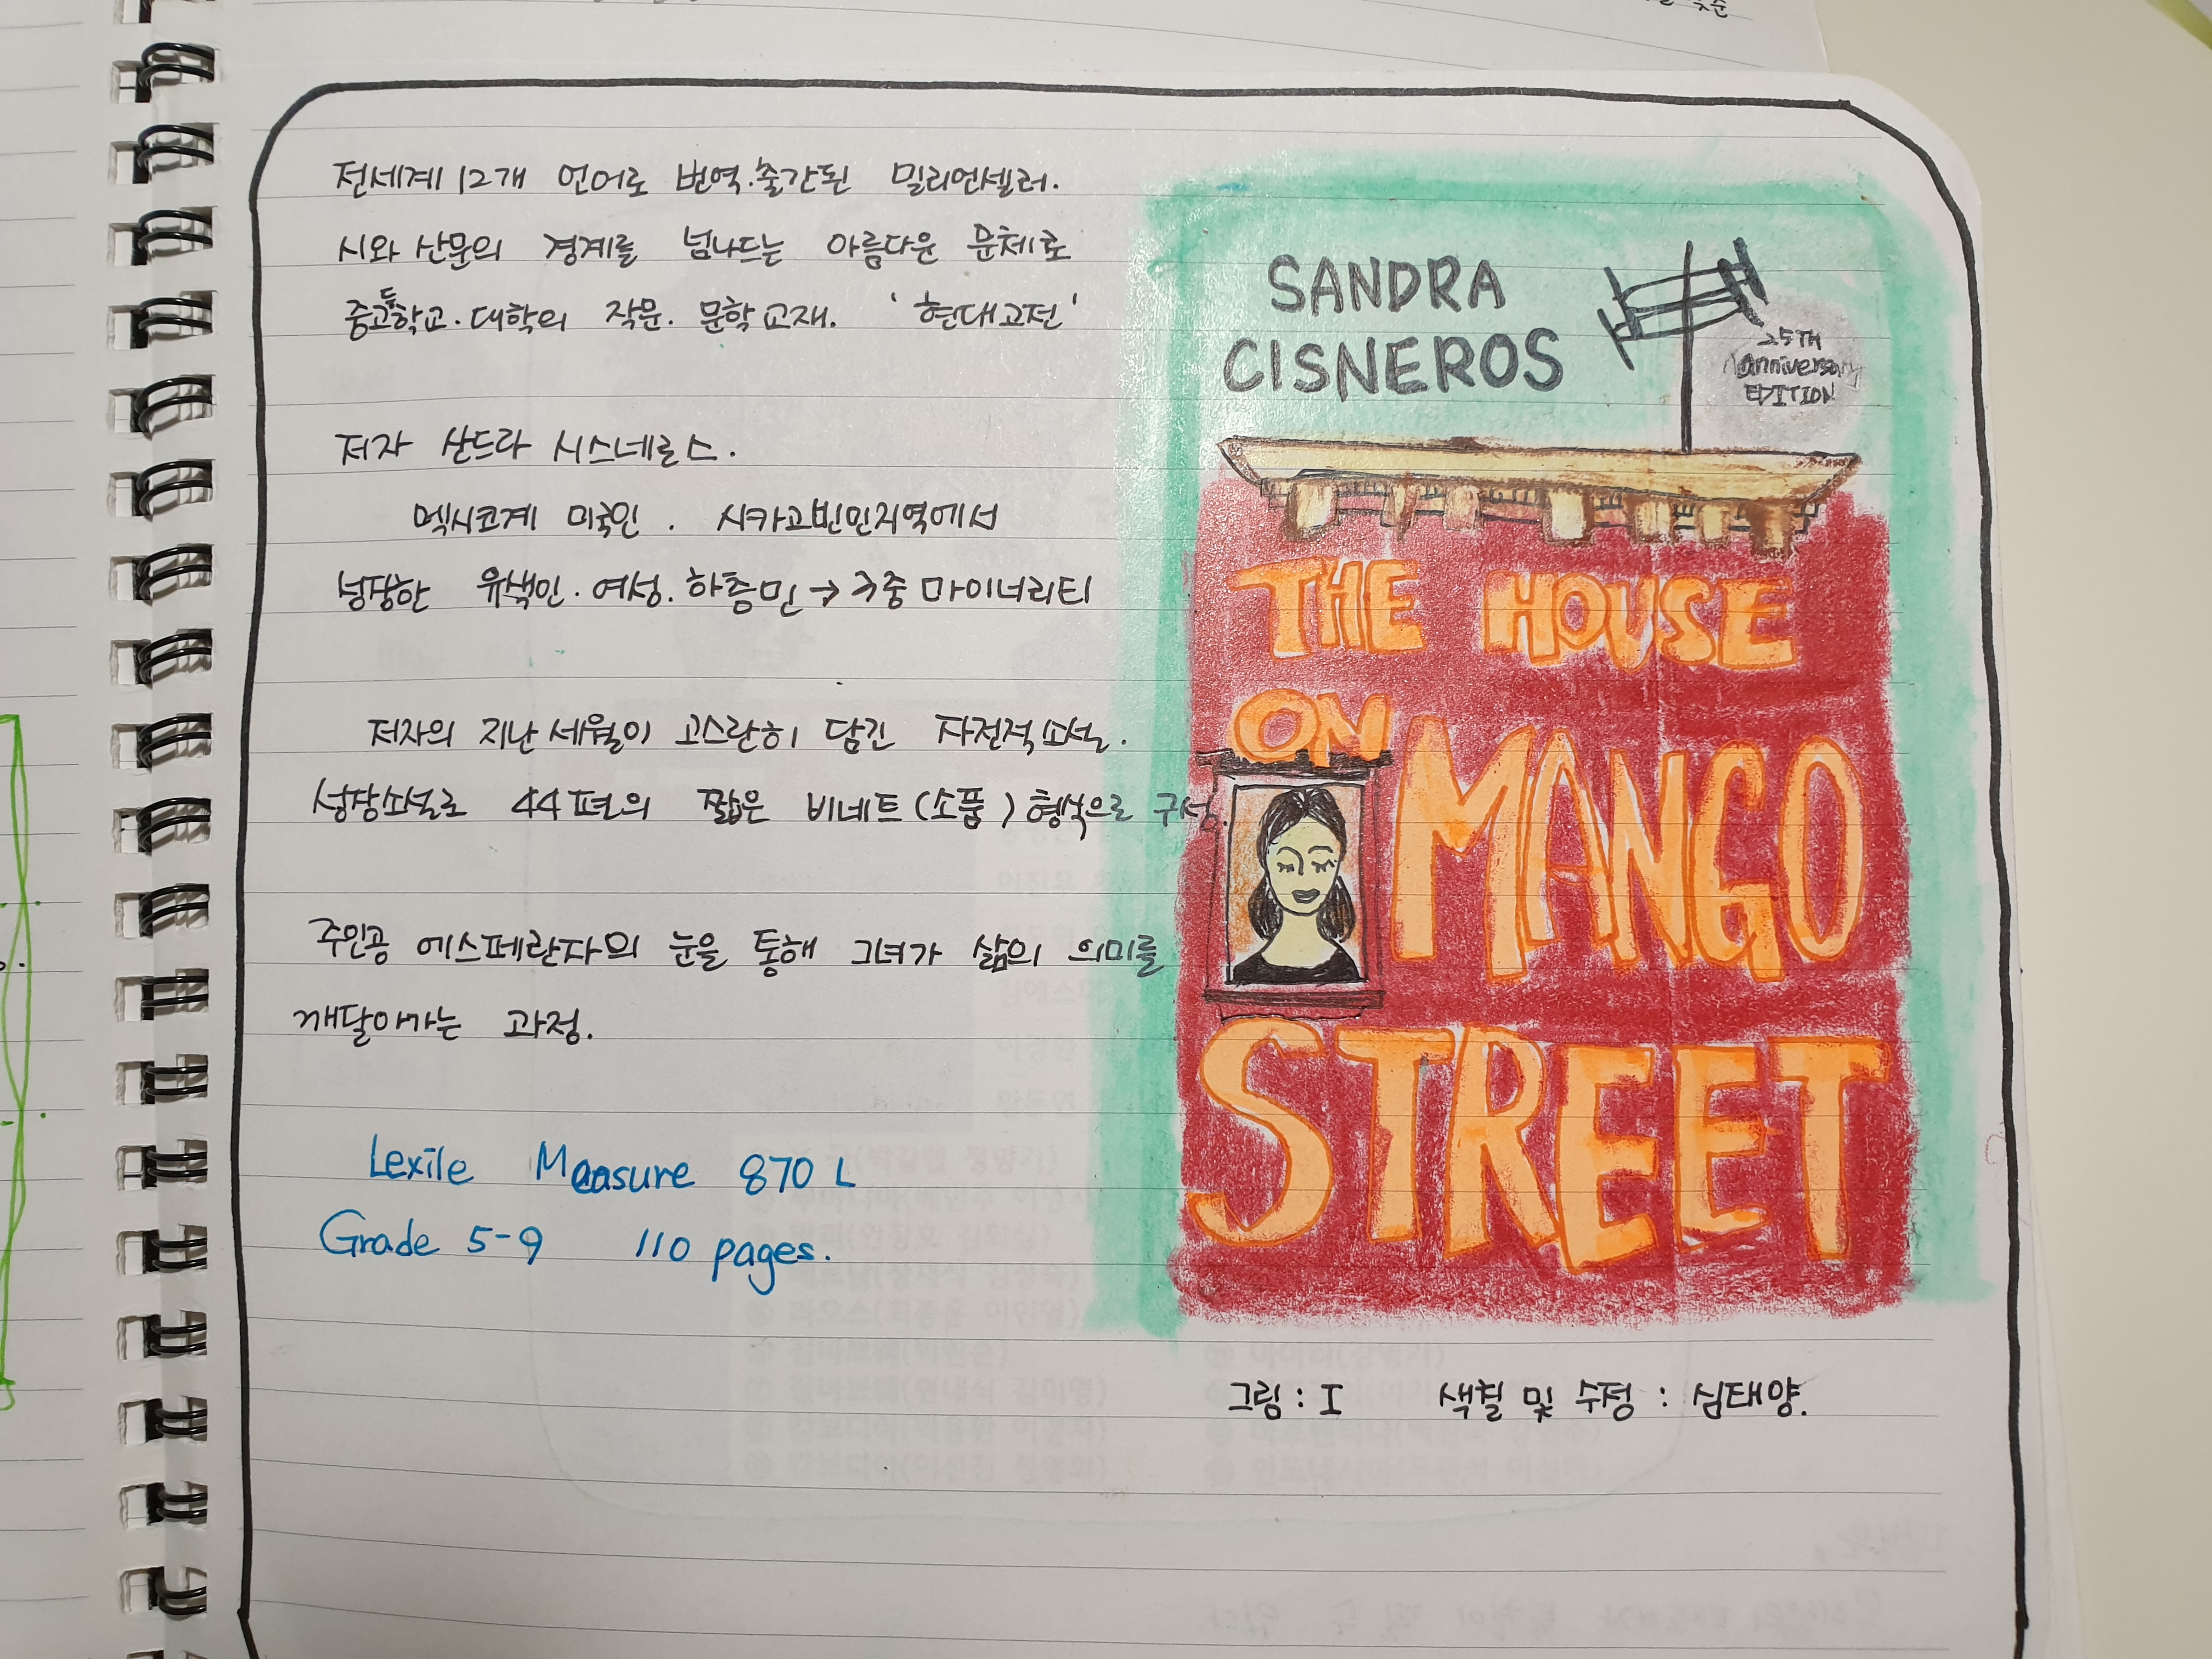 전세계 12개 언어로 번역.출간된 밀리언셀러.
시와 산문의 경계를 넘나드는 아름다운 문체로
중고등학교. 대학의 작문. 문학교재. '현대고전'
저자 산드라 시스네로스.
멕시코계 미국인. 시카고빈민지역에서
성장한 유색인. 여성. 하층민 → 3중 마이너리티
저자의 지난 세월이 고스란히 담긴 자전적소설.
성장소설로 44편의 짧은 비네트(소품) 형식으로 구성.
주인공 에스페란자의 눈을 통해 그녀가 삶의 의미를
깨달아가는 과정.
Lexile Measure 870 L
Grade 5-9 110 pages.
SANDRA
CISNEROS
25TH
Anniversary
EDITION
THE HOUSE
ON
MANGO
STREET
그림 : I 색칠 및 수정 : 심태양.